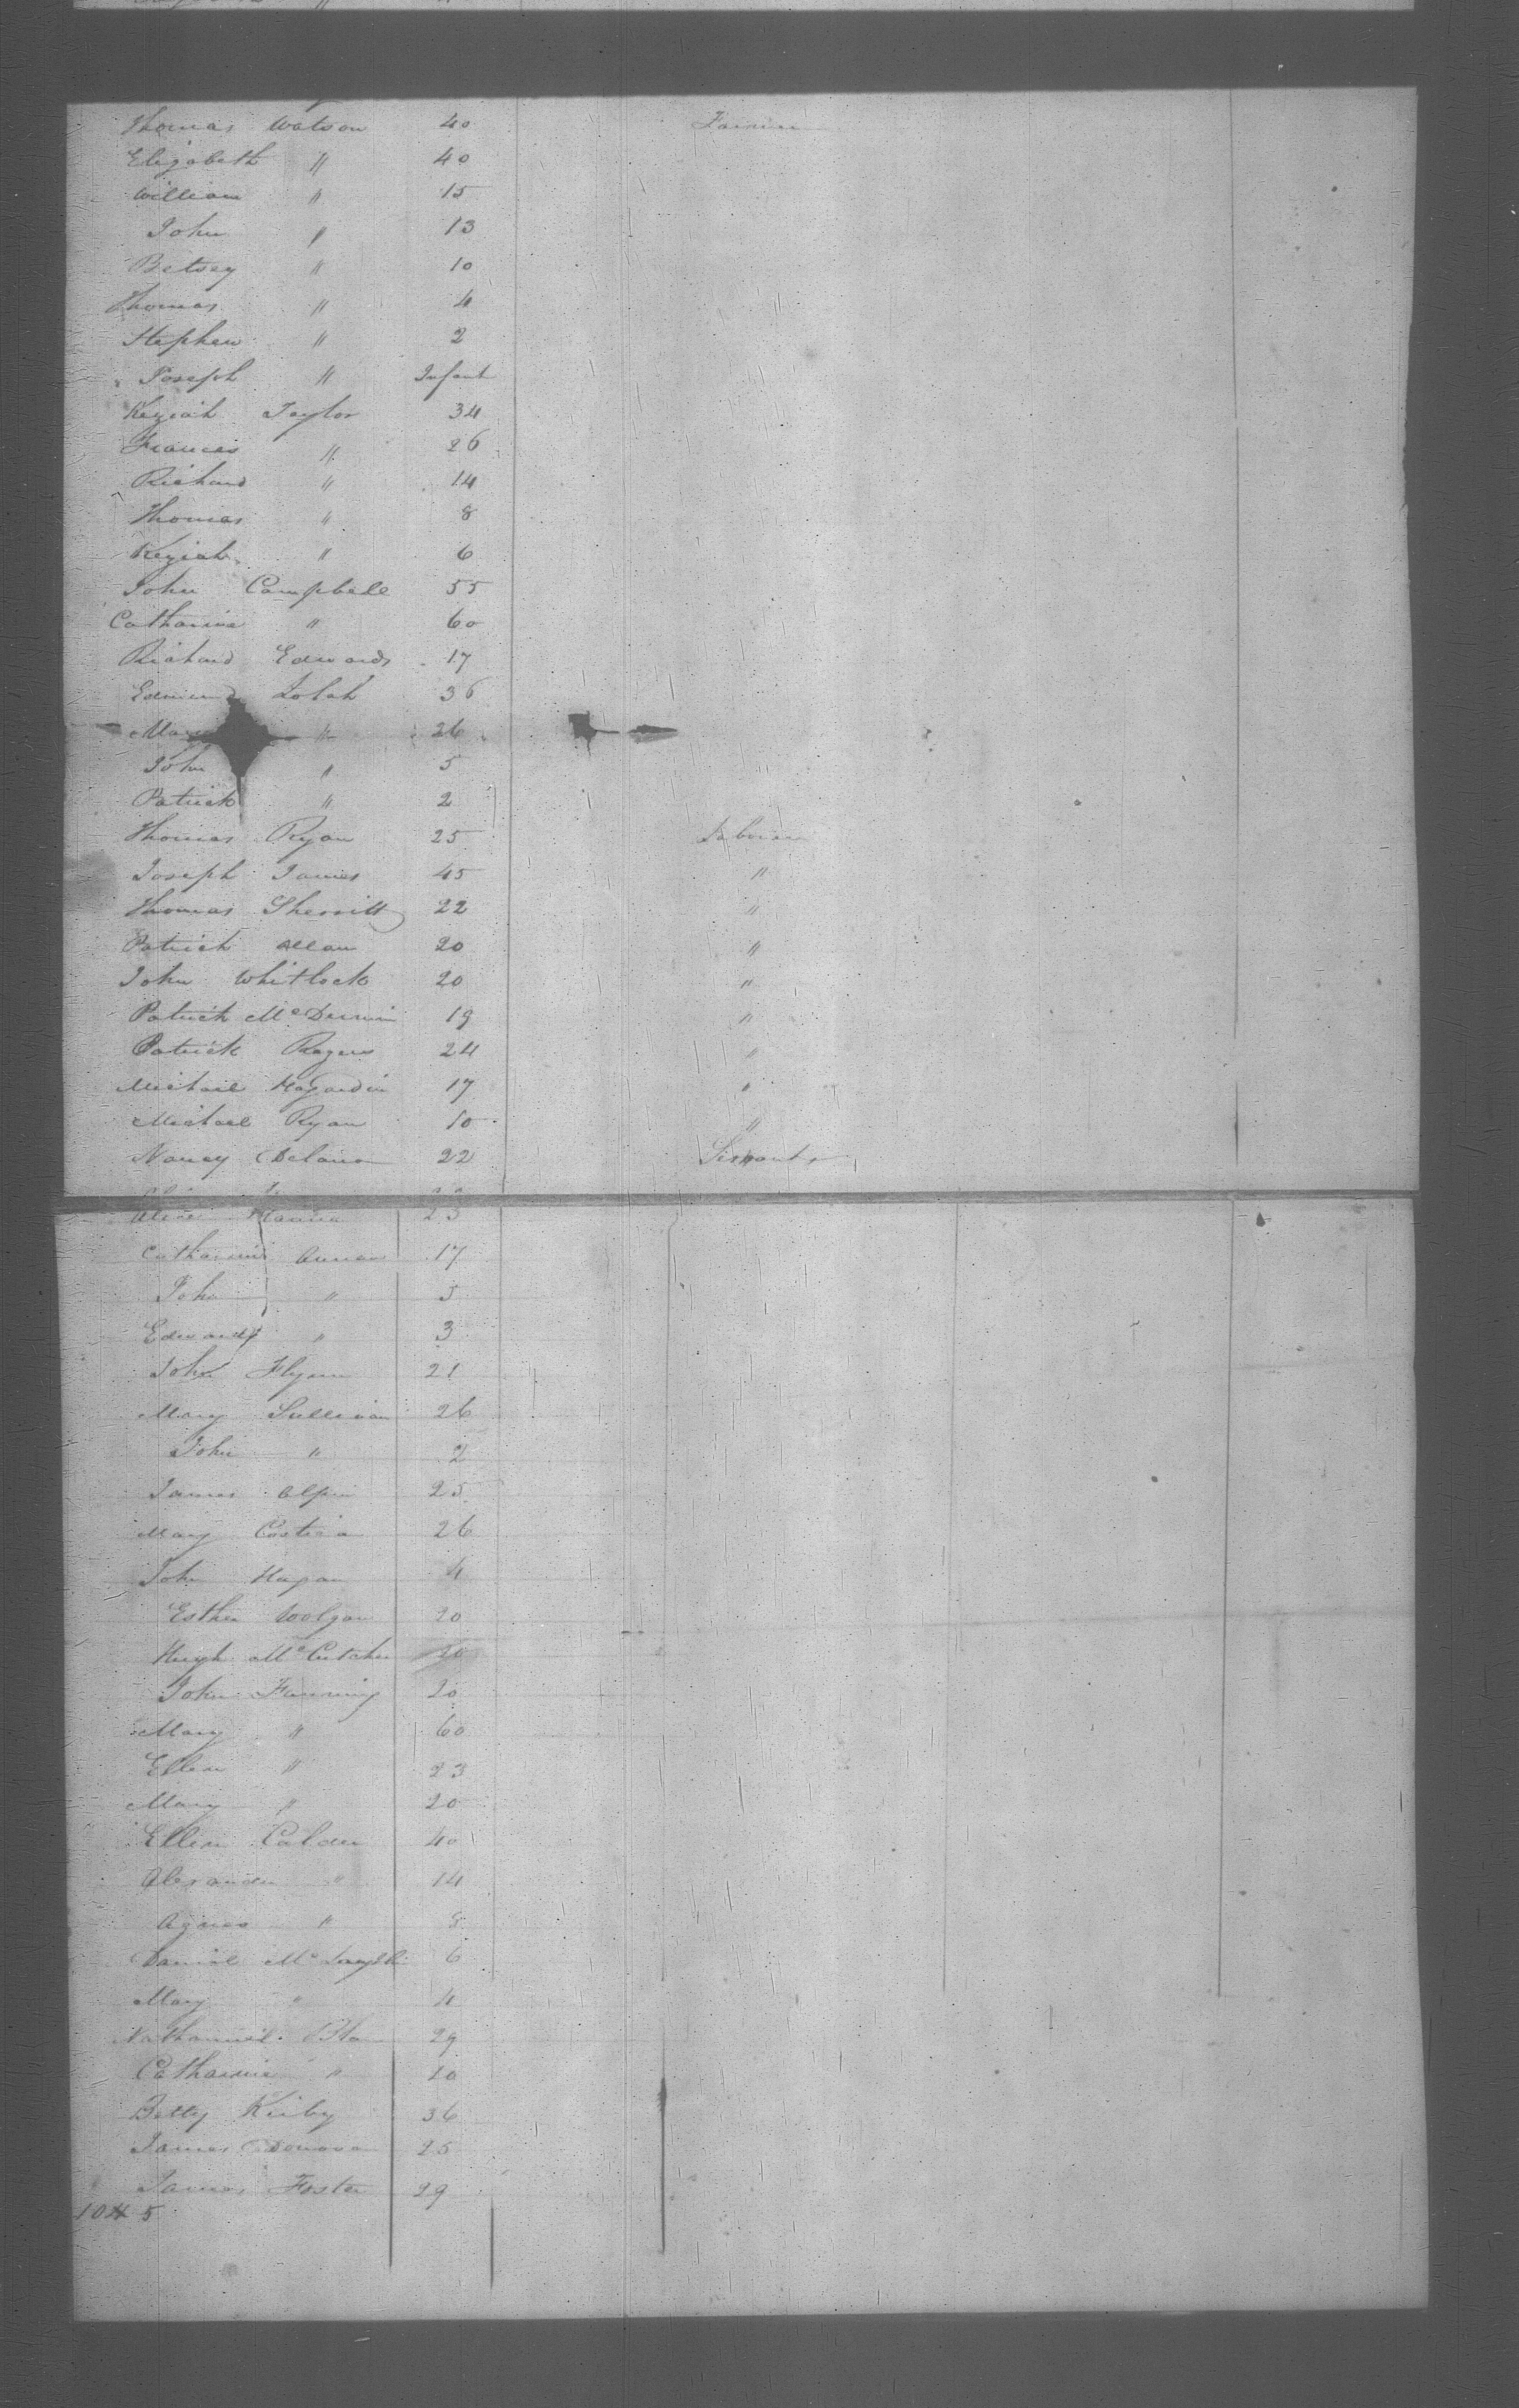 Thomas Watson 40 Farmer
Elizabeth " 40
William " 15
John " 13
Betsey " 10
Thomas " 4
Stephen " 2
Joseph " Infant
Keziah Taylor 34
Frances " 26
Richard " 14
Thomas " 8
Keziah " 6
John Campbell 55
Catharine " 60
Richard Edwards 17
Edmund 36
Mary " 26
John " 5
Patrick " 2
Thomas Ryan 25 Laborer
Joseph James 45 "
Thomas Sherritt 22 "
Patrick Allan 20 "
John Whitlock 20 "
Patrick 19 "
Patrick Rogers 24 "
Michael 17 "
Michael Ryan 10 "
Nancy Delano 22 Servant
23
Catharine 17
John " 5
Edward " 3
John Flynn 21
Mary Sullivan 26
John " 2
James Alpin 25
Mary 26
John Hagan 4
Esther 20
Hugh McCutchen 20
John Fanning 20
Mary " 60
Ellen " 23
Mary " 20
Ellen Calder 40
Alexander " 14
Agnes " 8
Daniel McLaughlin 6
Mary " 4
Nathaniel 29
Catharine " 20
Betty Kirby 36
James Donovan 25
James Foster 29
104 5